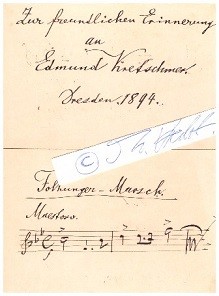 Zur freundlichen Erinnerung
an
Edmund Kretschmer.
Dresden. 1894.
Folkunger-Marsch.
Maestoso.